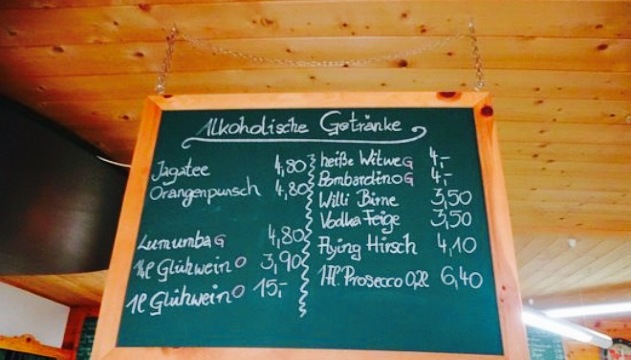 Alkoholische Getränke
Jagatee 4,80
Orangenpunsch 4,80
Lumumba G 4,80
Glühwein O 3,90
1l Glühwein O 15,-
heiße Witwe G 4,-
Bombardino G 4,-
Willi Birne 3,50
Vodka Feige 3,50
Flying Hirsch 4,10
Prosecco 0,2l 6,40